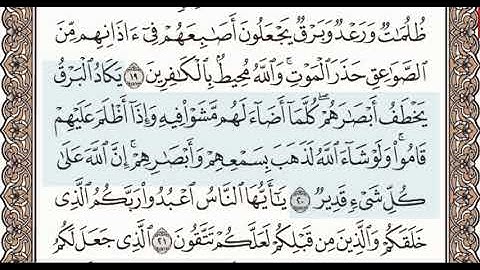 ظُلُمَٰتٌ وَرَعْدٌ وَبَرْقٌ يَجْعَلُونَ أَصَٰبِعَهُمْ فِىٓ ءَاذَانِهِم مِّنَ
ٱلصَّوَٰعِقِ حَذَرَ ٱلْمَوْتِ ۚ وَٱللَّهُ مُحِيطٌۢ بِٱلْكَٰفِرِينَ ١٩ يَكَادُ ٱلْبَرْقُ
يَخْطَفُ أَبْصَٰرَهُمْ ۖ كُلَّمَآ أَضَآءَ لَهُم مَّشَوْا۟ فِيهِ وَإِذَآ أَظْلَمَ عَلَيْهِمْ
قَامُوا۟ ۚ وَلَوْ شَآءَ ٱللَّهُ لَذَهَبَ بِسَمْعِهِمْ وَأَبْصَٰرِهِمْ ۚ إِنَّ ٱللَّهَ عَلَىٰ
كُلِّ شَىْءٍ قَدِيرٌ ٢٠ يَٰٓأَيُّهَا ٱلنَّاسُ ٱعْبُدُوا۟ رَبَّكُمُ ٱلَّذِى
خَلَقَكُمْ وَٱلَّذِينَ مِن قَبْلِكُمْ لَعَلَّكُمْ تَتَّقُونَ ٢١ ٱلَّذِى جَعَلَ لَكُمُ